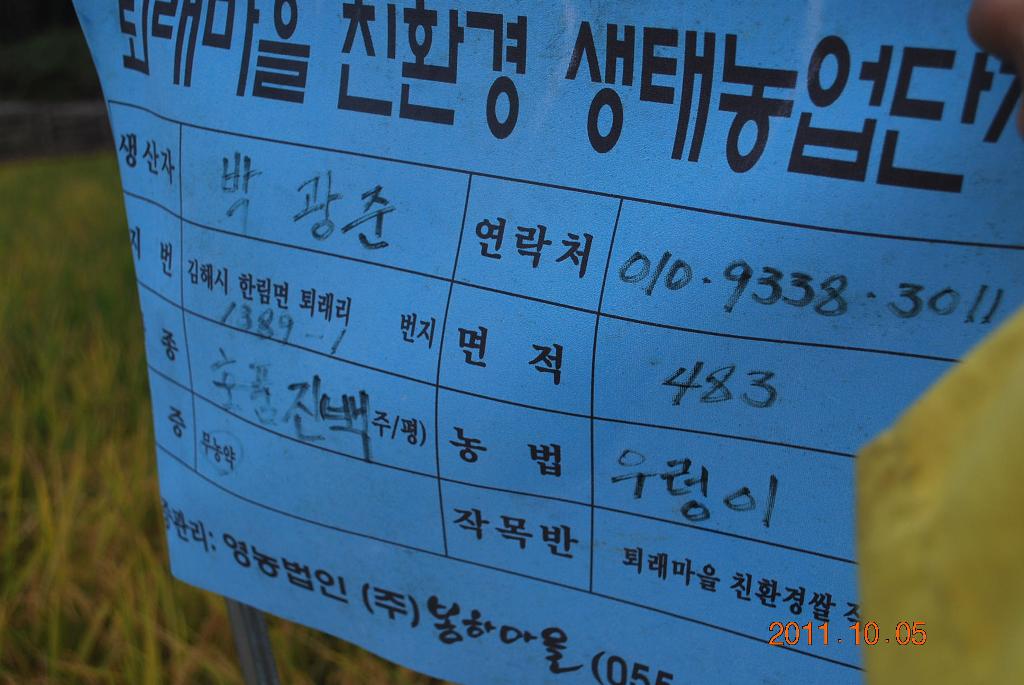 퇴래마을 친환경 생태농업단지
생산자 박광춘 연락처 010·9338·3011
지번 김해시 한림면 퇴래리 1389-1 번지 면적 483
종 진백 주/평) 농법 우렁이
증 무농약 작목반 퇴래마을 친환경쌀
관리: 영농법인 (주)봉하마을 (055
2011.10.05